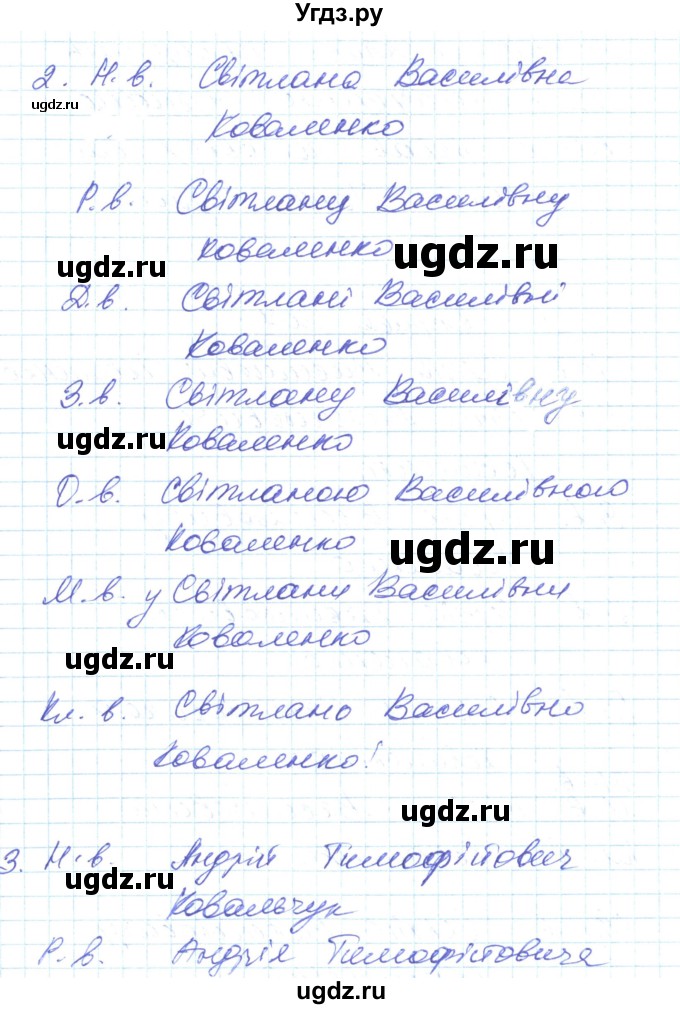 Угдз.ру
2. Н. в. Світлана Василівна
ugdz.ru
Коваленко
Р. в. Світлану Василівну
Коваленко
ugdz.ru
ugdz.ru
Д. в. Світлані Василівні
Коваленко
З. в. Світлану Василівну
ugdz.ru
Коваленко
О. в. Світланою Василівною
Коваленко
ugdz.ru
М. в. у Світлани Василівни
Коваленко
ugdz.ru
Кл. в. Світлано Василівно
Коваленко!
ugdz.ru
3. Н. в. Андрій Тимофійович
ugdz.ru
Ковальчук
Р. в. Андрія Тимофійовича
ugdz.ru